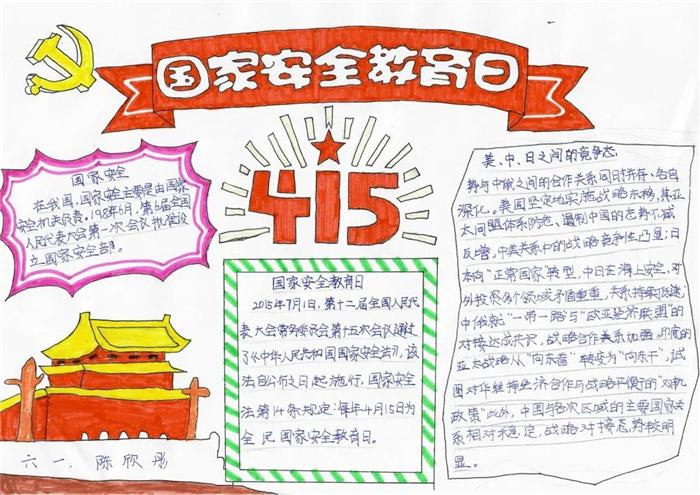 国家安全教育日
415
国家安全
在我国,国家安全主要是由国家
安全机关负责。1984年6月,第6届全国
人民代表大会第一次会议批准设
立国家安全部。
国家安全教育日
2015年7月1日,第十二届全国人民代
表大会常务委员会第十五次会议通过
了《中华人民共和国国家安全法》,该
法自公布之日起施行,国家安全
法第14条规定:每年4月15日为
全民国家安全教育日。
美、中、日之间的竞争态
势与中俄之间的合作关系同时并存、各自
深化。美国坚定地实施战略东移,其亚
太同盟体系防范、遏制中国的态势不减
反增,中美关系中的战略竞争性凸显;日
本向“正常国家”转型,中日在海上安全、对
外投资各个领域矛盾重重,关系持续低迷;
中俄就“一带一路”与“欧亚经济联盟”的
对接达成共识,战略合作关系加强;印度的
亚太战略从“向东看”转变为“向东干”,试
图对华维持经济合作与战略平衡的“对冲
政策”此外,中国与各次区域的主要国家关
系相对稳定,战略对接态势较明
显。
六一.陈欣彤